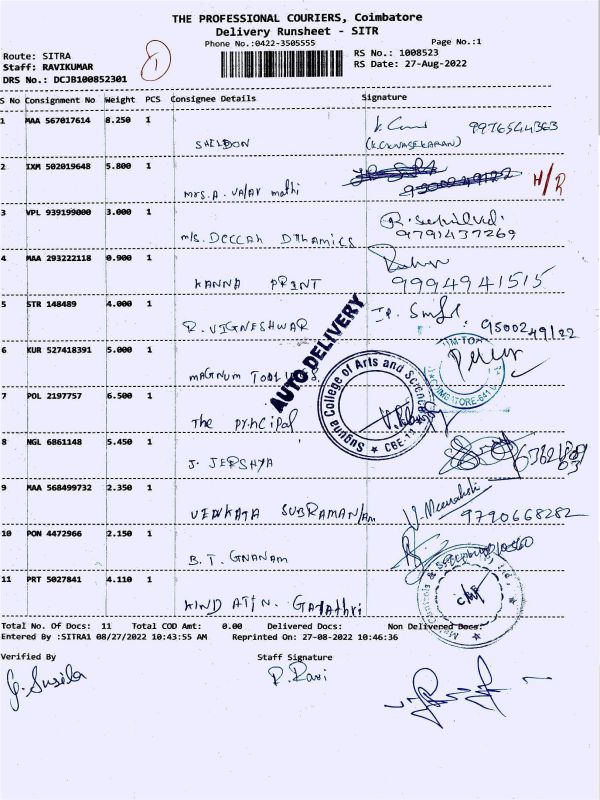 THE PROFESSIONAL COURIERS, Coimbatore
Delivery Runsheet - SITR
Phone No.:0422-3505555
Page No.:1
Route: SITRA
Staff: RAVIKUMAR
DRS No.: DCJB100852301
1
RS No.: 1008523
RS Date: 27-Aug-2022
S No Consignment No Weight PCS Consignee Details Signature
1 MAA 567017614 8.250 1
SHELDON
9976544363
(K.GUNASEKARAN)
2 IXM 502019648 5.800 1
mrs. A. vajay mathi
9500249122
H/R
3 VPL 939199000 3.000 1
m/s. DECCAN DYNAMICS
9791437269
4 MAA 293222118 0.900 1
KANNA PRINT
9994941515
5 STR 148489 4.000 1
R. VIGNESHWAR
9500249122
AUTO DELIVERY
6 KUR 527418391 5.000 1
MAGNUM
COIMBATORE-641
7 POL 2197757 6.500 1
The Principal
Suguna College of Arts and Science
CBE-14
8 NGL 6861148 5.450 1
J. JERSHYA
9 MAA 568499732 2.350 1
VENKATA SUBRAMANIAM
V. Meenakshi
9790668282
10 PON 4472966 2.150 1
B. T. GNANAM
11 PRT 5027841 4.110 1
KIND ATTN. Gayathri
Total No. Of Docs: 11 Total COD Amt: 0.00 Delivered Docs: Non Delivered Docs:
Entered By :SITRA1 08/27/2022 10:43:55 AM Reprinted On: 27-08-2022 10:46:36
Verified By Staff Signature
G. Susila R. Ravi